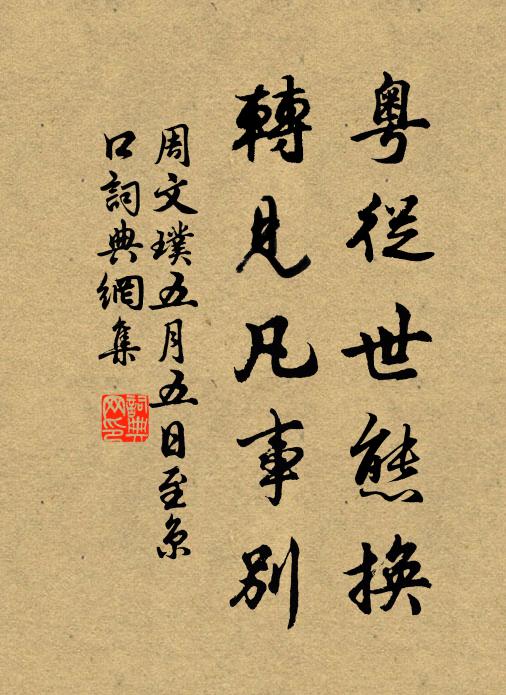 粤從世態換
轉見凡事別
周文璞五月五日至京
口詞典網集
詞典網印